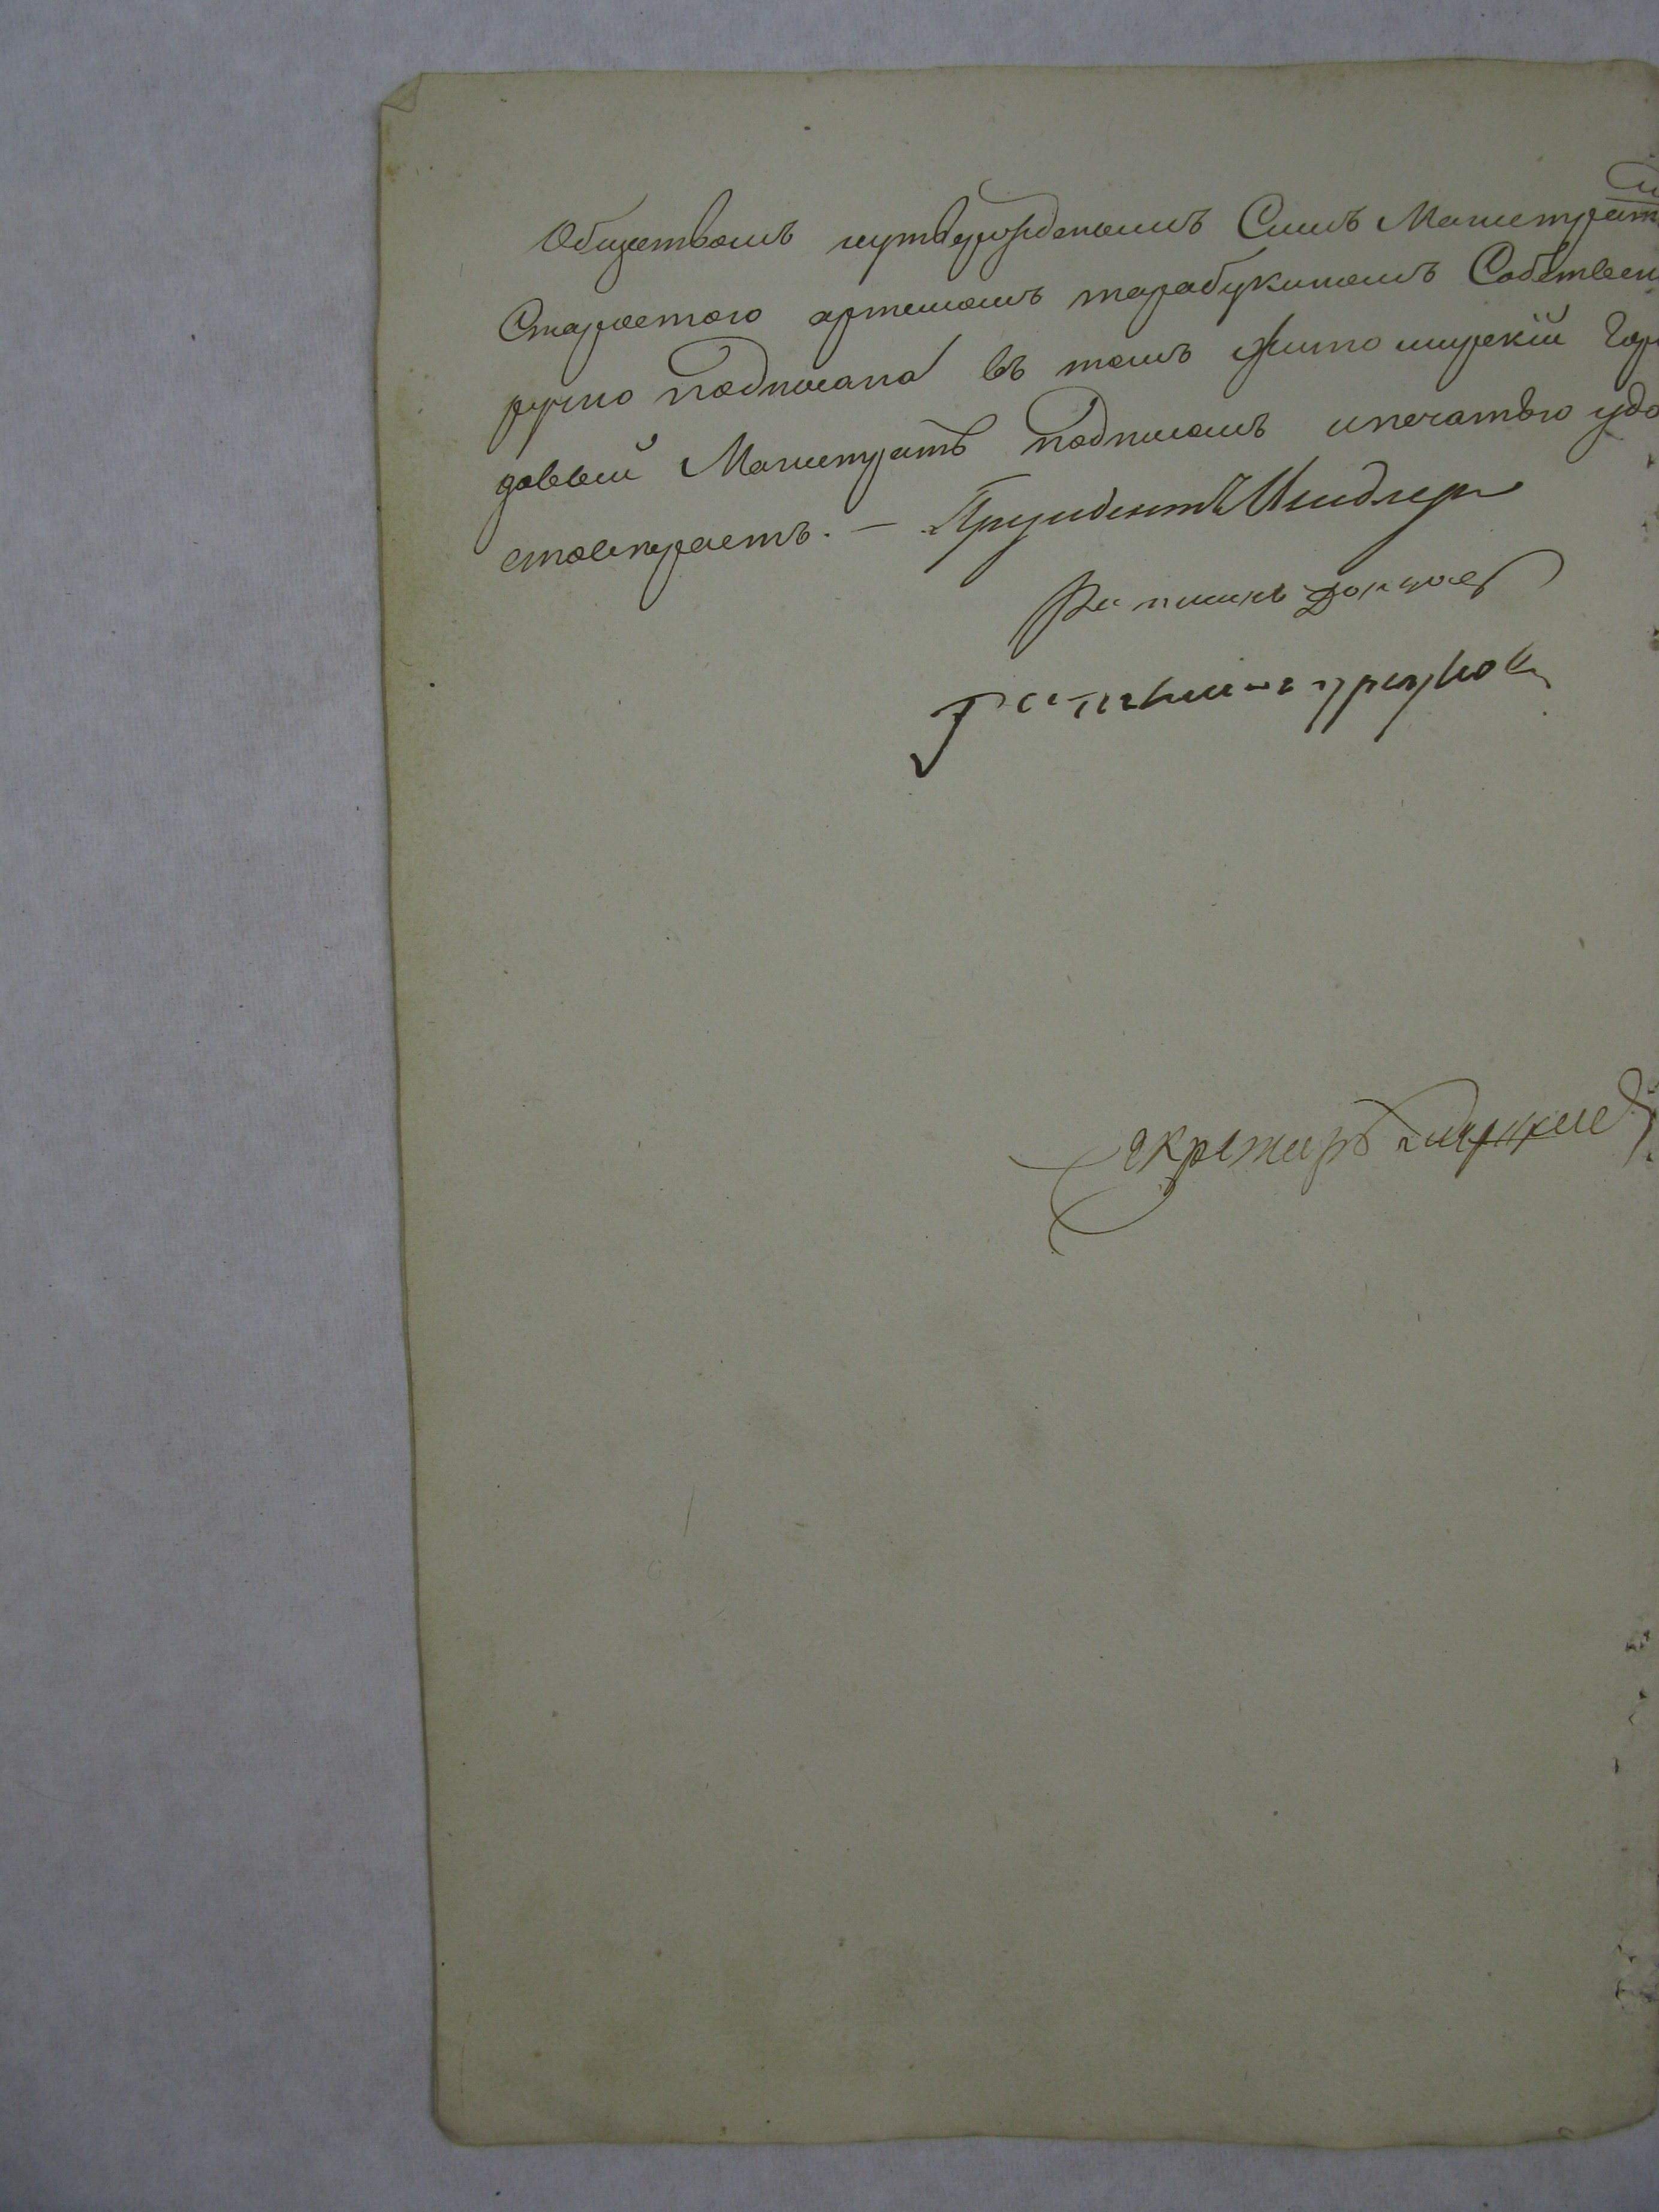 Обществомъ иутвержденомъ Симъ Магистрат
Старостою артемомъ тарабукиномъ Собствен
ручно подписана въ томъ Житомирскій Гор
довый Магистратъ подписомъ ипечатью удо
стоверяетъ. — Президентъ
Ратманъ
Ратманъ
Секретарь